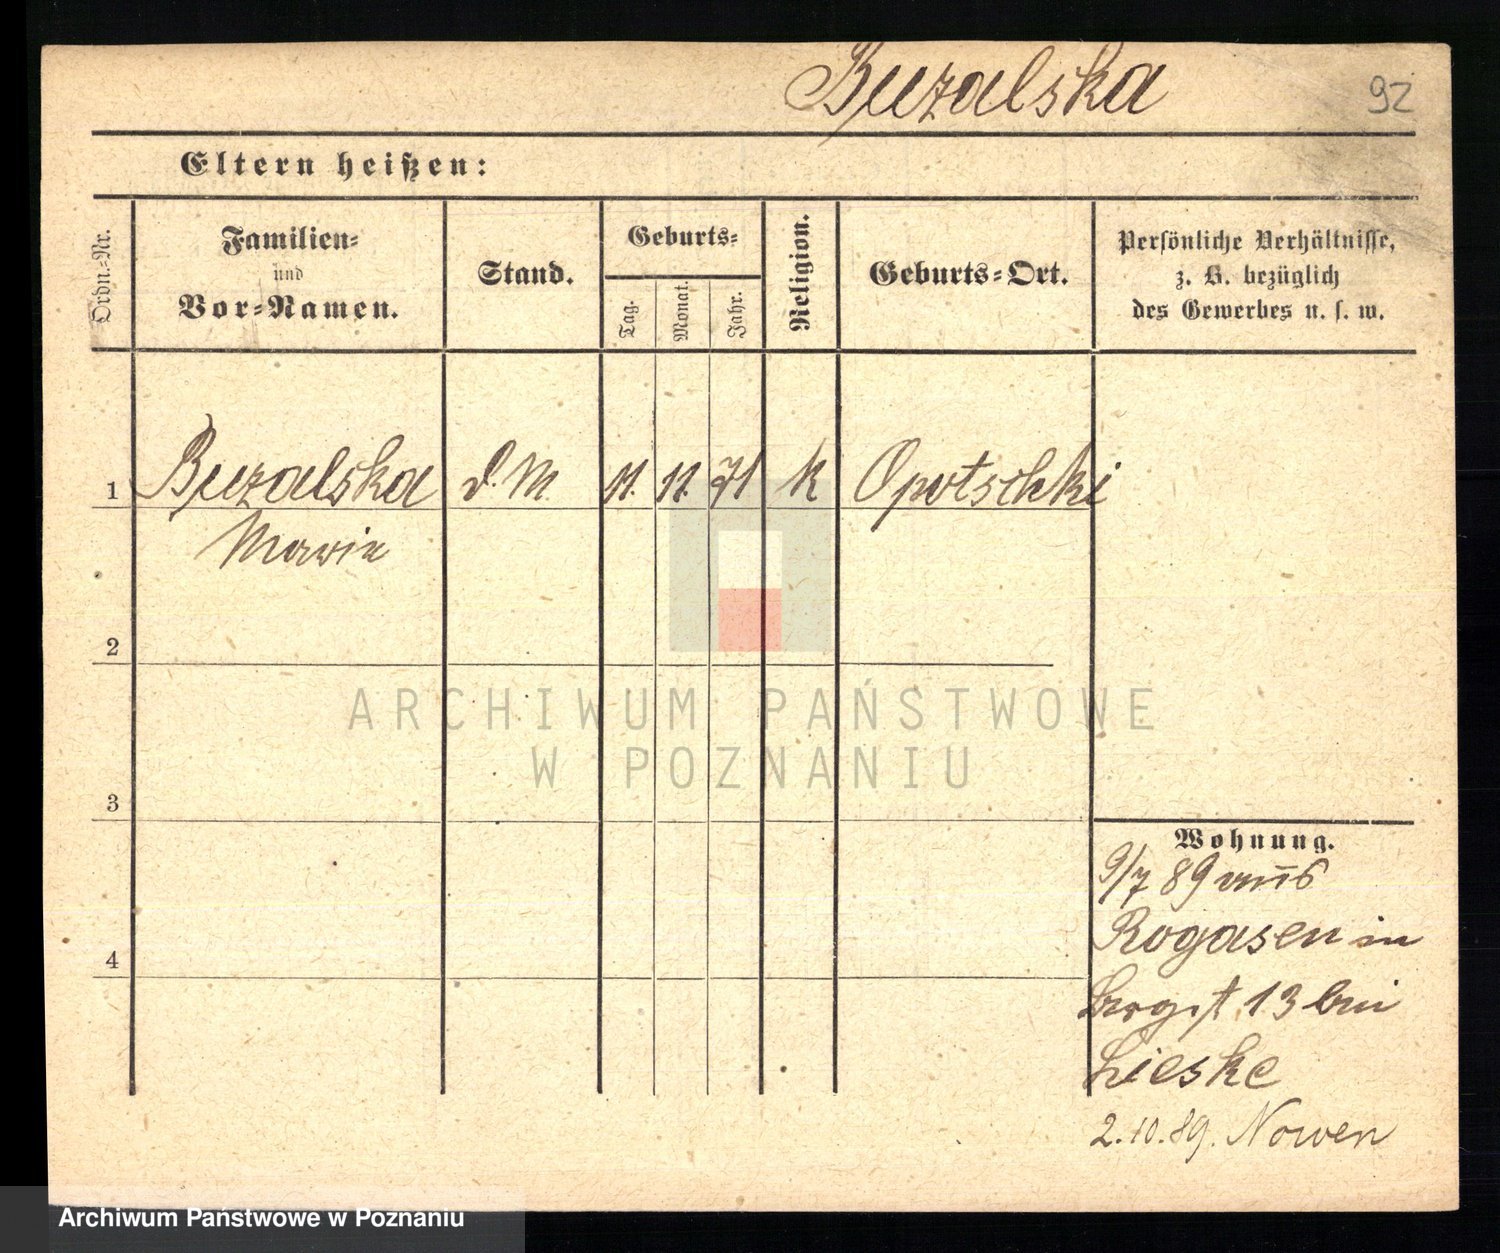 Buzalska
92
Eltern heißen:
Ordn.-Nr.
Familien-
und
Vor-Namen.
Stand.
Geburts-
Tag.
Monat.
Jahr.
Religion.
Geburts-Ort.
Persönliche Verhältnisse,
z. B. bezüglich
des Gewerbes u. s. w.
1 Buzalska D.M. 11. 11. 71 K Opotschki
Marie
2
3
4
ARCHIWUM PAŃSTWOWE
W POZNANIU
Wohnung.
9/7 89 aus
Rogasen in
13 bei
Lieske
2.10.89. Nowen
Archiwum Państwowe w Poznaniu